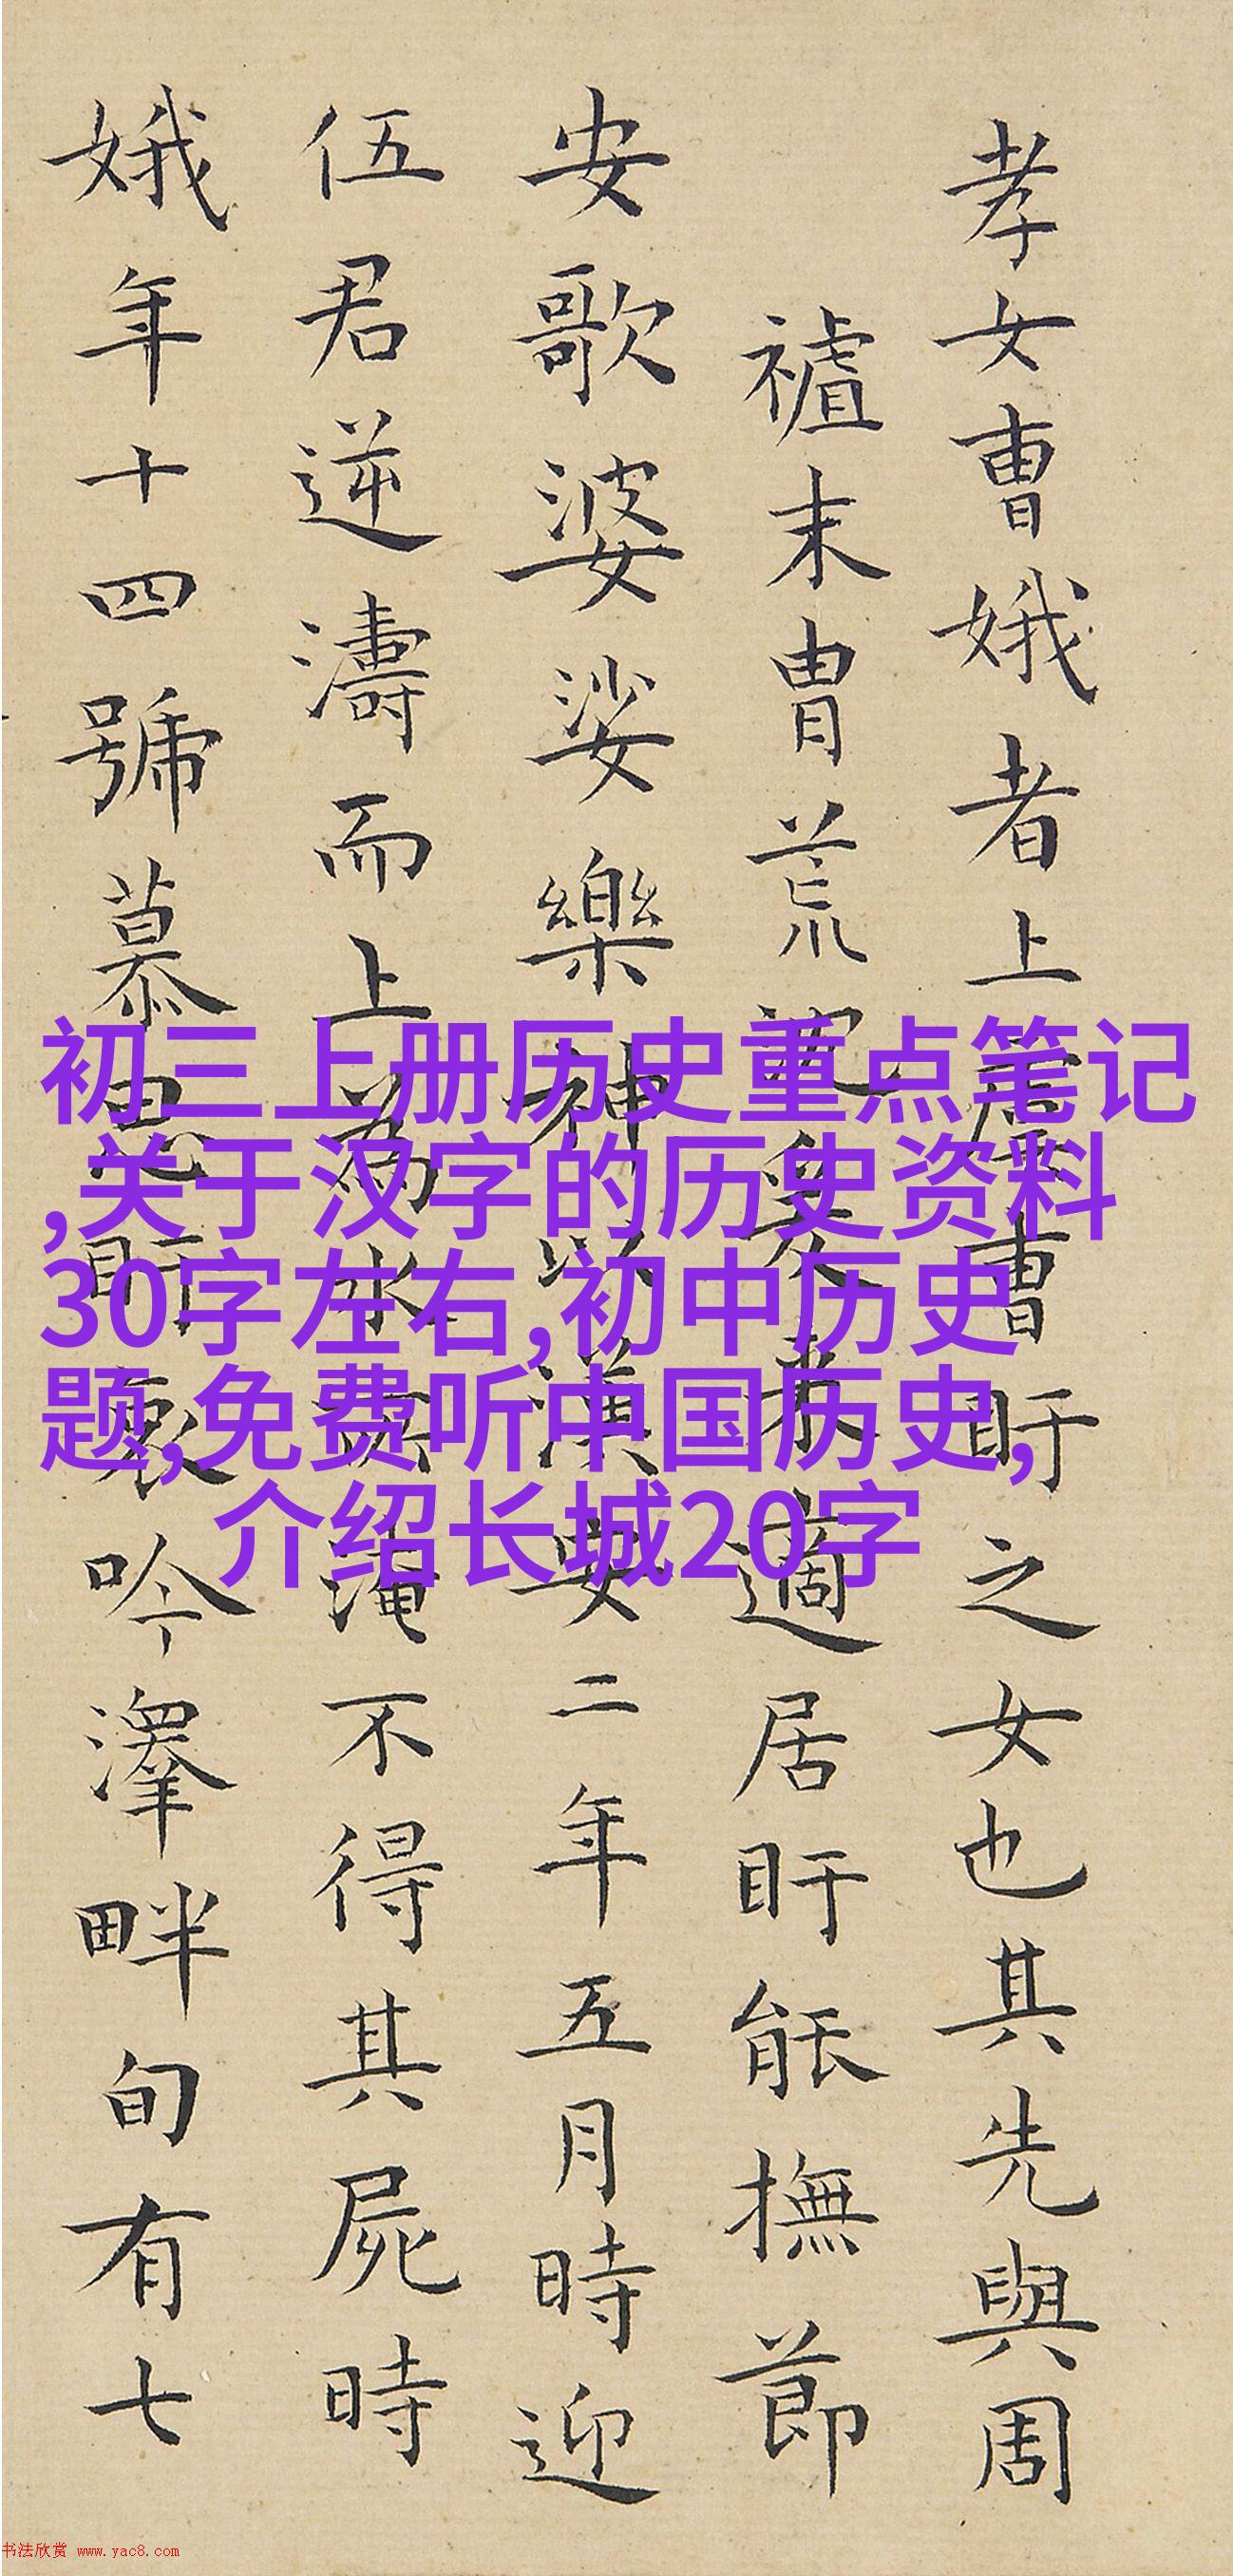 孝女曹娥者上曹盱之女也其先與周
祖末胄荒爰来適居盱能撫節
安歌婆娑樂神以漢安二年五月時迎
伍君逆濤而上為水淹不得其屍時
娥年十四號慕思盱哀吟澤畔旬有七
初三上册历史重点笔记
,关于汉字的历史资料
30字左右,初中历史
题,免费听中国历史,
介绍长城20字
书法欣赏 www.yac8.com